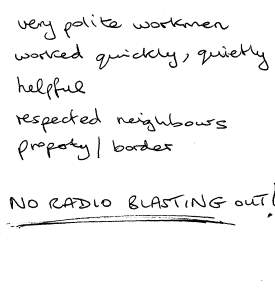 very polite workmen
worked quickly, quietly
helpful
respected neighbours
property / border
NO RADIO BLASTING OUT!